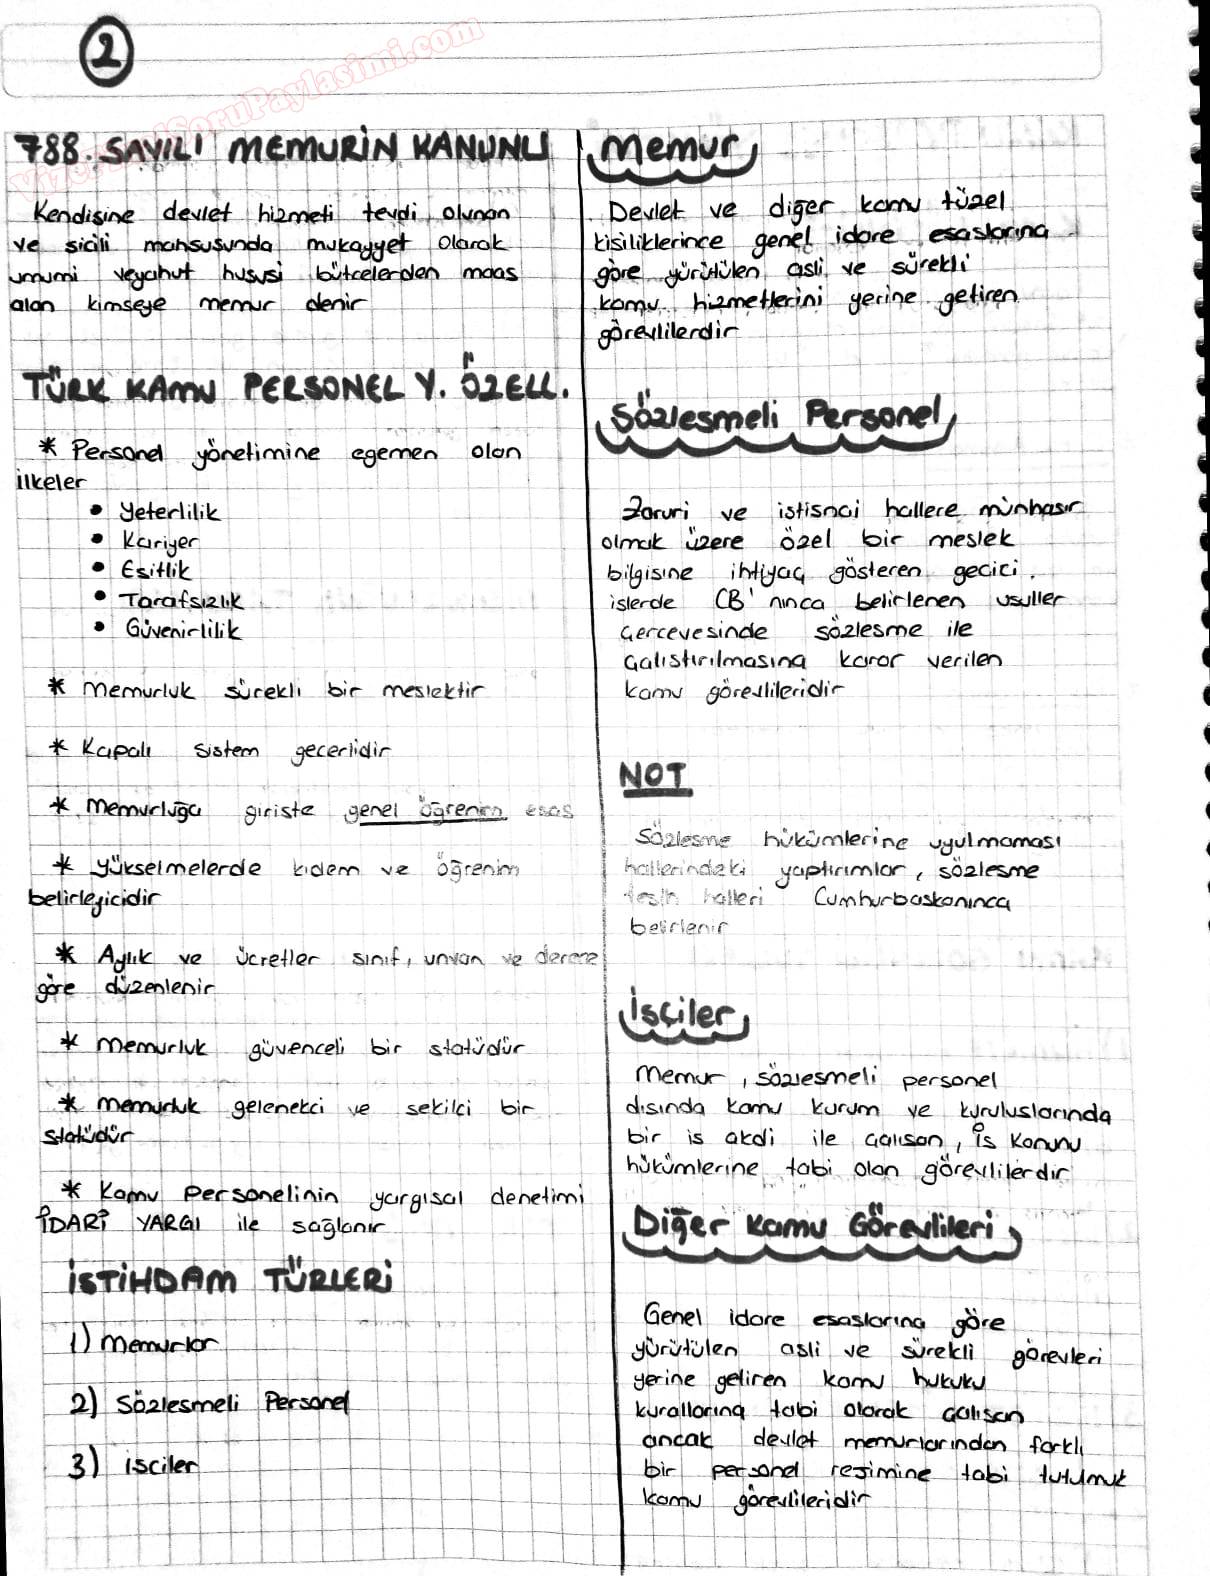 2
VizeFinalSoruPaylasimi.com
788. SAYILI MEMURİN KANUNU
Kendisine devlet hizmeti tevdi olunan
ve sicili mahsusunda mukayyet olarak
umumi veyahut hususi bütcelerden maas
alan kimseye memur denir
TÜRK KAMU PERSONEL Y. ÖZELL.
* Personel yönetimine egemen olan
ilkeler
• Yeterlilik
• Kariyer
• Esitlik
• Tarafsızlık
• Güvenirlilik
* memurluk sürekli bir meslektir
* Kapalı sistem gecerlidir
* memurluğa giriste genel öğrenim esas
* Yükselmelerde kıdem ve öğrenim
belirleyicidir
* Aylık ve ücretler sınıf, unvan ve derece
göre düzenlenir
* memurluk güvenceli bir statüdür
* memurluk gelenekci ve sekilci bir
statüdür
* Kamu Personelinin yargısal denetimi
İDARİ YARGI ile sağlanır
İSTİHDAM TÜRLERİ
1) memurlar
2) Sözlesmeli Personel
3) isciler
memur
Devlet ve diğer kamu tüzel
kisiliklerince genel idare esaslarına
göre yürütülen asli ve sürekli
kamu hizmetlerini yerine getiren
görevlilerdir
Sözlesmeli Personel
Zaruri ve istisnai hallere münhasır
olmak üzere özel bir meslek
bilgisine ihtiyaç gösteren gecici
islerde CB' nınca belirlenen usuller
çercevesinde sözlesme ile
çalıstırılmasına karar verilen
kamu görevlileridir
NOT
Sözlesme hükümlerine uyulmaması
hallerindeki yaptırımlar, sözlesme
fesih halleri Cumhurbaskanınca
belirlenir
İsçiler
memur, sözlesmeli personel
dısında kamu kurum ve kuruluslarında
bir is akdi ile çalısan, İs Kanunu
hükümlerine tabi olan görevlilerdir
Diğer Kamu Görevlileri
Genel idare esaslarına göre
yürütülen asli ve sürekli görevleri
yerine getiren kamu hukuku
kurallarına tabi olarak çalısan
ancak devlet memurlarından farklı
bir personel rejimine tabi tutulmuk
kamu görevlileridir